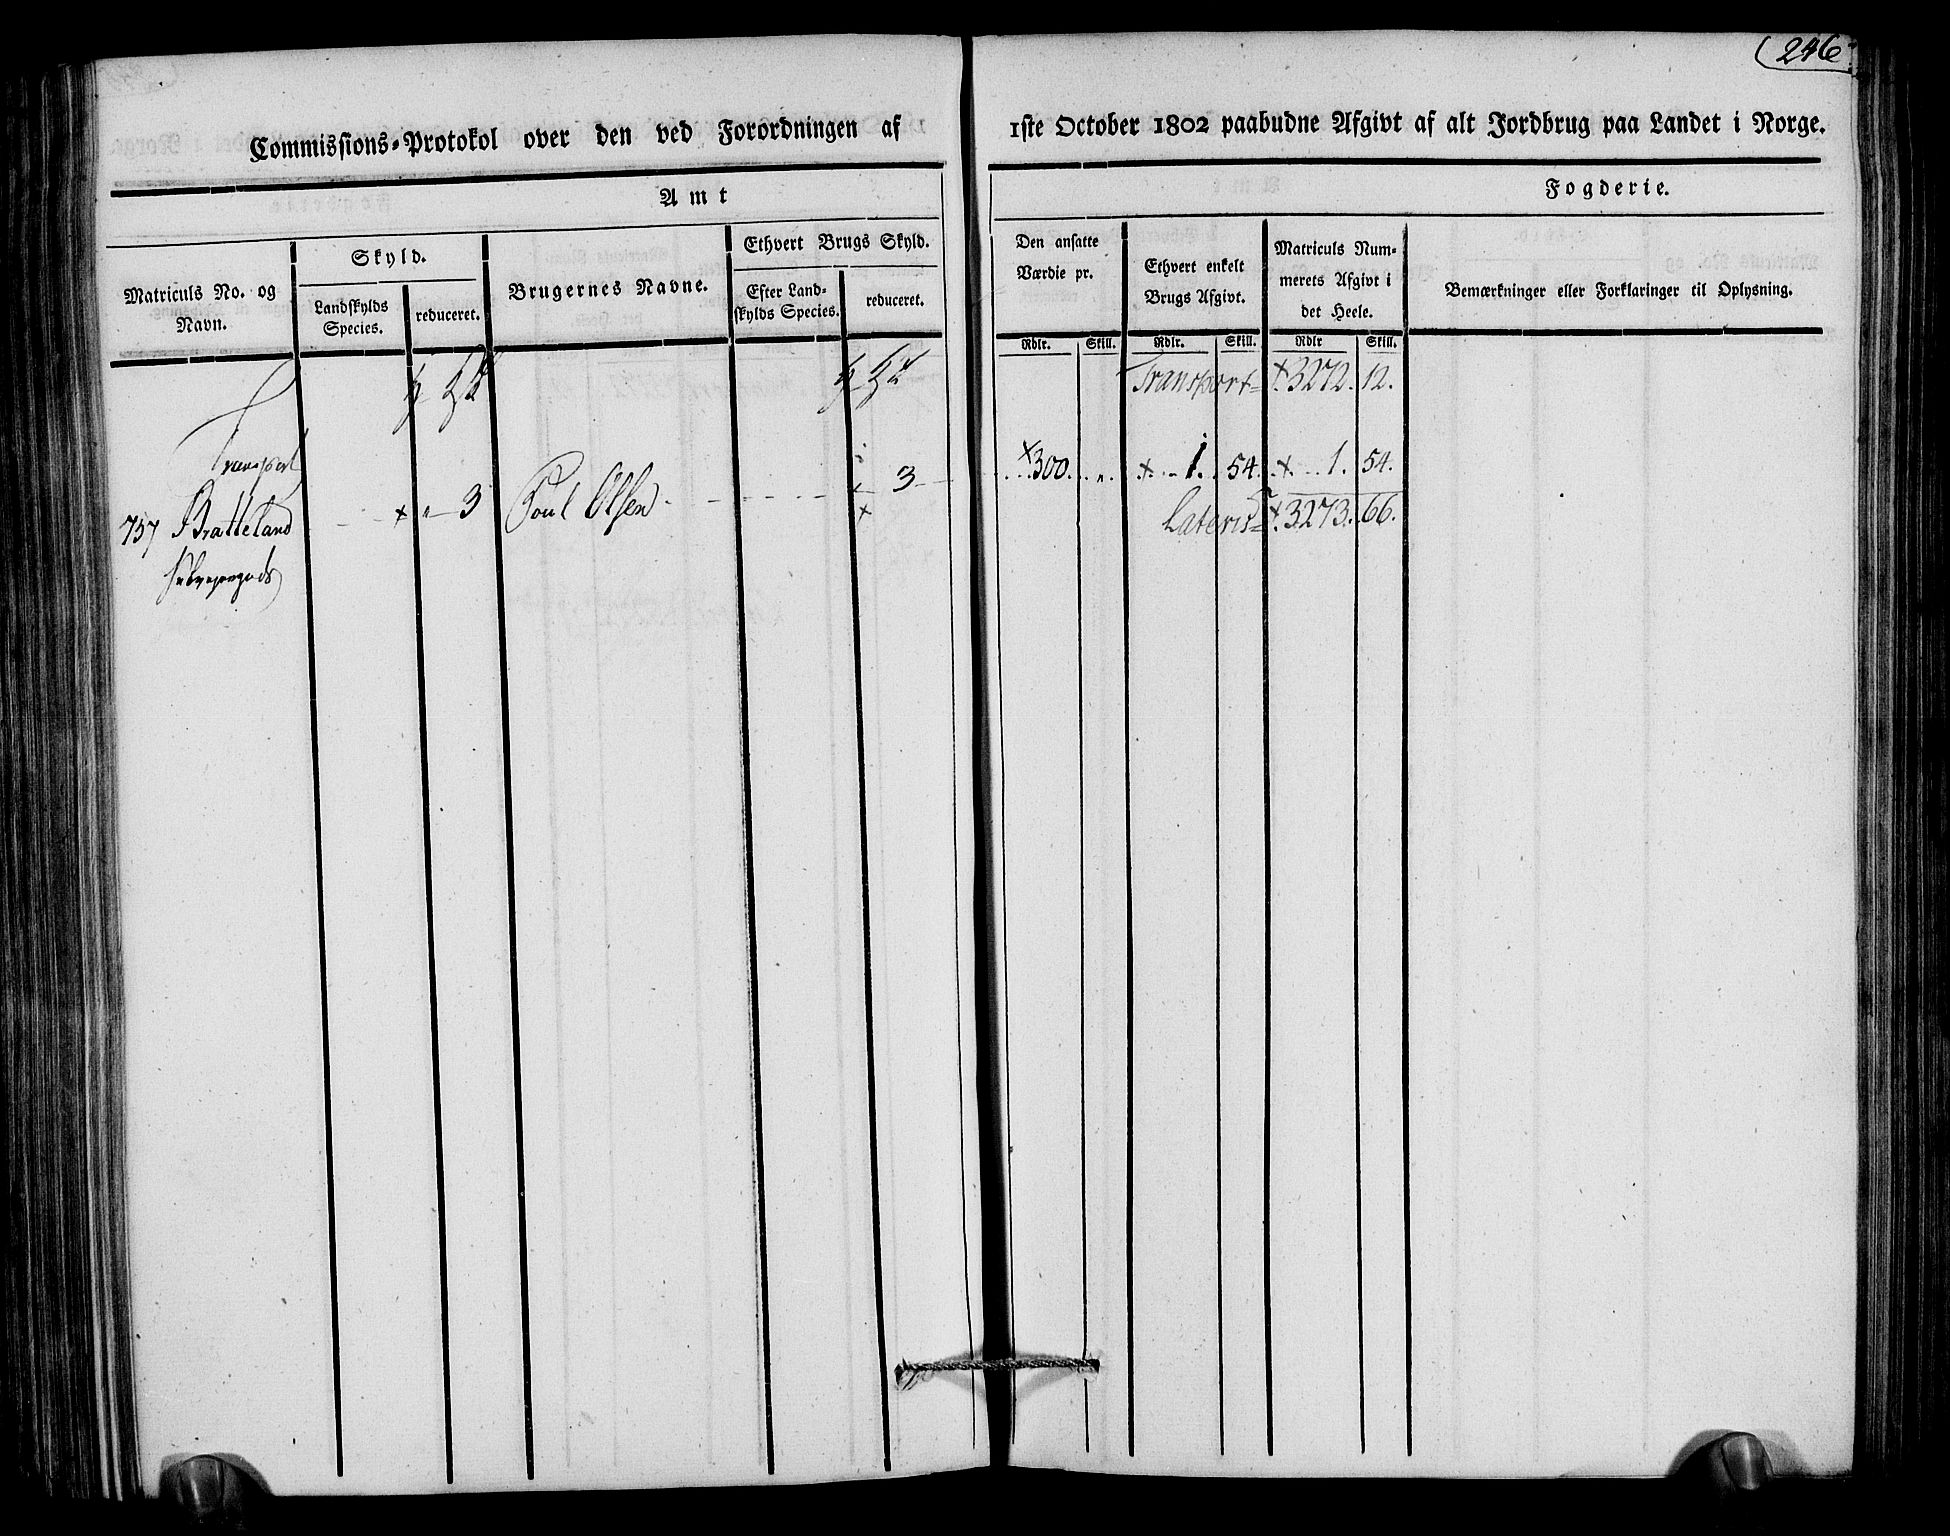 246
Commissions-Protokol over den ved Forordningen af 1ste October 1802 paabudne Afgivt af alt Jordbrug paa Landet i Norge.
Amt Fogderie.
Matriculs No. og Navn.
Skyld.
Landskylds Species.
reduceret.
Brugernes Navne.
Ethvert Brugs Skyld.
Efter Landskylds Species.
reduceret.
Den ansatte Værdie pr.
Ethvert enkelt Brugs Afgivt.
Matriculs Nummerets Afgivt i det Heele.
Bemærkninger eller Forklaringer til Oplysning.
Rdlr. Skill. Rdlr. Skill. Rdlr Skill.
Transport 3272. 12.
Transport
757 Bratteland 3 Poul Olsen 3 300. 1. 54. 1. 54.
Lateris 3273. 66.